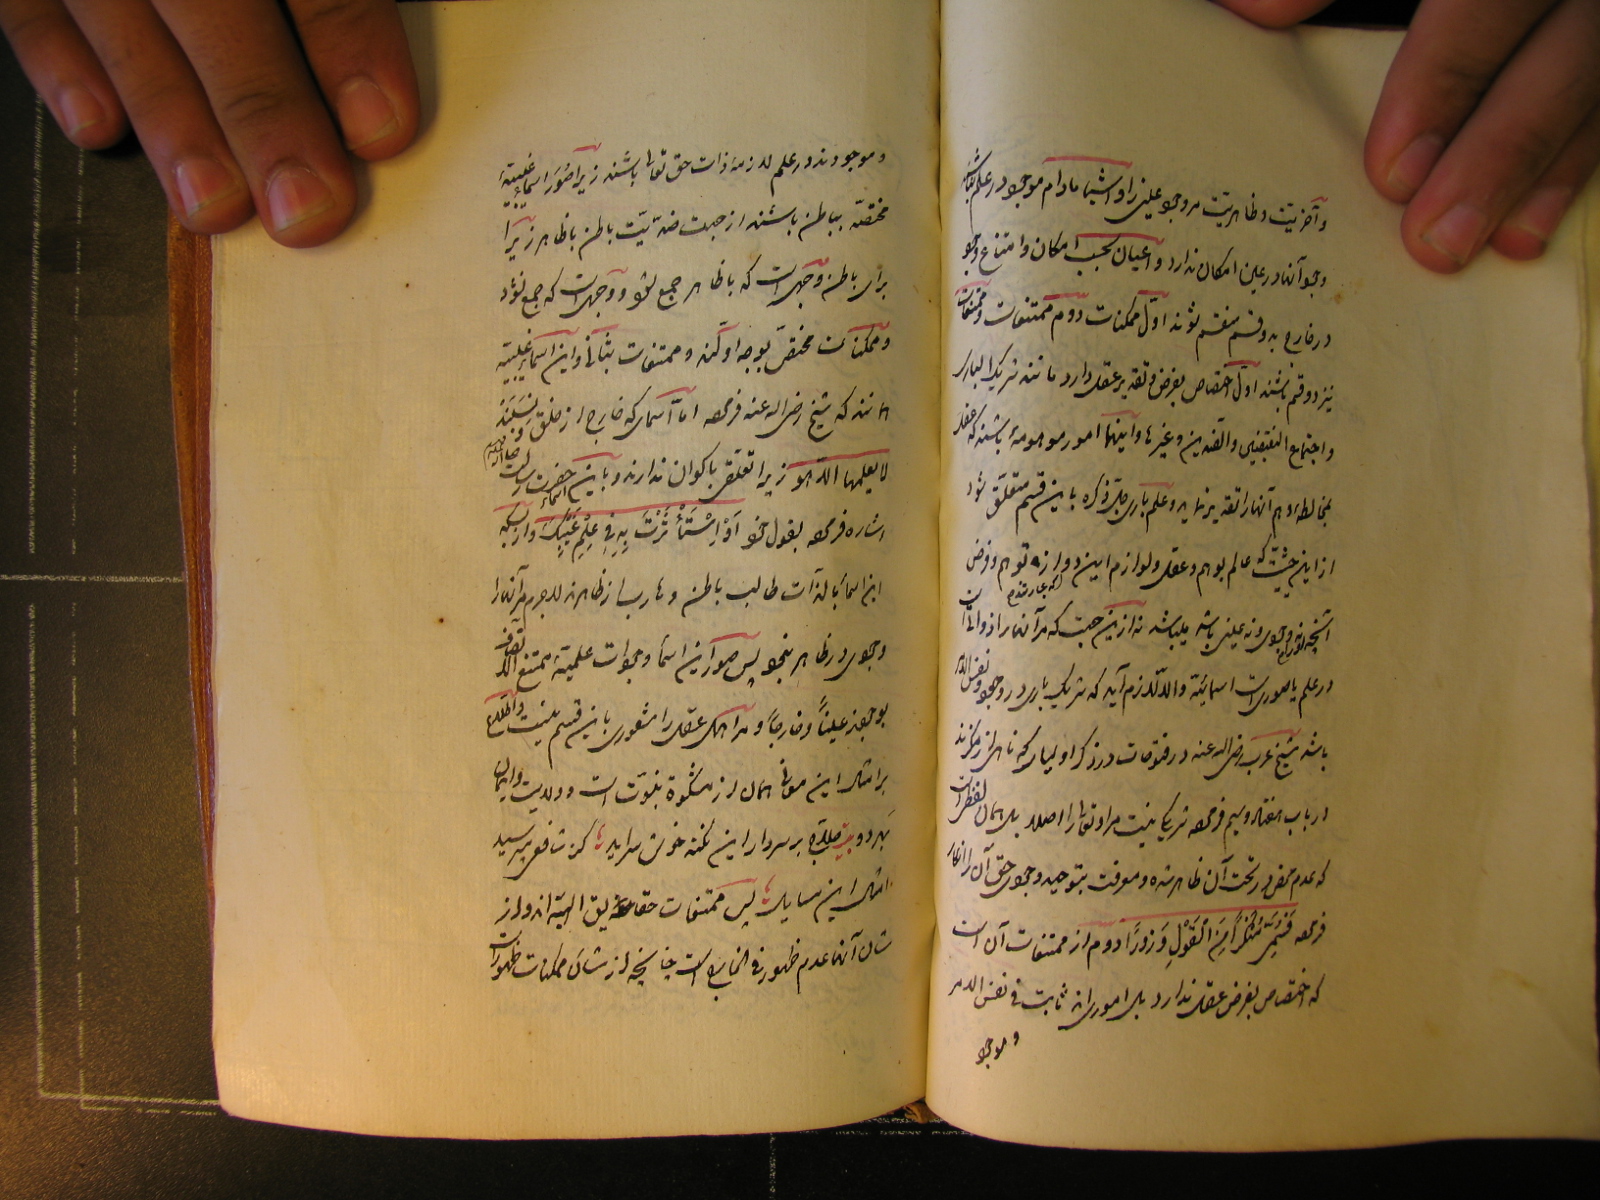 و آخریت و ظاهریت هر وجود علینی را و اشیا مادام موجود در علم باشند
وجود آنها در عین امکان ندارد و اعیان بحسب امکان و امتناع وجود
در خارج به دو قسم منقسم شوند اول ممکنات دوم ممتنعات و ممتنعات
نیز دو قسم باشند اول اختصاص بفرض و تقدیر عقل دارد مانند شریک الباری
و اجتماع النقیضین و الضدین و غیرها و اینها امور موهومهٔ باشند که عقل
بمخالطهٔ وهم آنها را تقدیر نماید و علم باری جل ذکره باین قسم متعلق شود
از این حیثیت که عالم بوهم و عقل و لوازم این دو از توهم و فرض
آنچه نه وجودی و نه عینی باشد میباشد نه ازین جهت که مر آنها را ذواتی است
در علم یا صوری است اسمائیه و الا لازم آید که شریک باری در وجود و نفس الامر
باشد شیخ عرب رضی الله عنه در فتوحات در ذکر اولیا که ناهی از منکرند
در باب هفتاد و سیم فرموده شریکی نیست مر او تعالی را اصلا بل همان لفظی است
که عدم محض در تحت آن ظاهر شده و معرفت بتوحید وجودی حق آن را انکار
فرموده فَسُمِّیَ مُنْکَراً مِنَ الْقَوْلِ وَ زُوراً دوم از ممتنعات آن است
که اختصاص بفرض عقل ندارد بل اموری اند ثابت فی نفس الامر
و موجود
و موجودند در علم لازمهٔ ذات حق تعالی باشند زیرا صور اسماء غیبیهٔ
مختصه بباطن باشند از جهت ضدیت باطن با ظاهر زیرا
برای باطن وجهی است که با ظاهر جمع شود و وجهی است که جمع نشود
و ممکنات مختص بوجه اولند و ممتنعات بثانی و این اسماء غیبیه
مانند که شیخ رضی الله عنه فرموده اما اسمای که خارج از خلق و نسبند
لا یعلمها الا هو زیرا تعلق باکوان ندارند و باین اسماء حضرت رسالت صلی الله علیه
اشاره فرموده بقول خود اَوْ اِسْتَأْثَرْتَ بِهِ فِی عِلْمِ غَیْبِکَ و از آنجا که
این اسماء بالذات طالب باطن و هارب از ظاهرند لاجرم مر آنها را
وجودی در ظاهر نبود پس صور این اسماء وجودات علمیهٔ ممتنع الاتصاف
بوجود عیناً و خارجاً و مر اهل عقل را شعوری باین قسم نیست و اطلاع
بر امثال این معانی همان از مشکوة نبوت است و ولایت و ایمان
بهر دو بر سر دار این نکته خوش سراید که شافعی مپرسید
امثال این مسایل پس ممتنعات حقایق الهیه اند و از
شان آنها عدم ظهور فی الخارج است چنانچه از شان ممکنات ظهور است